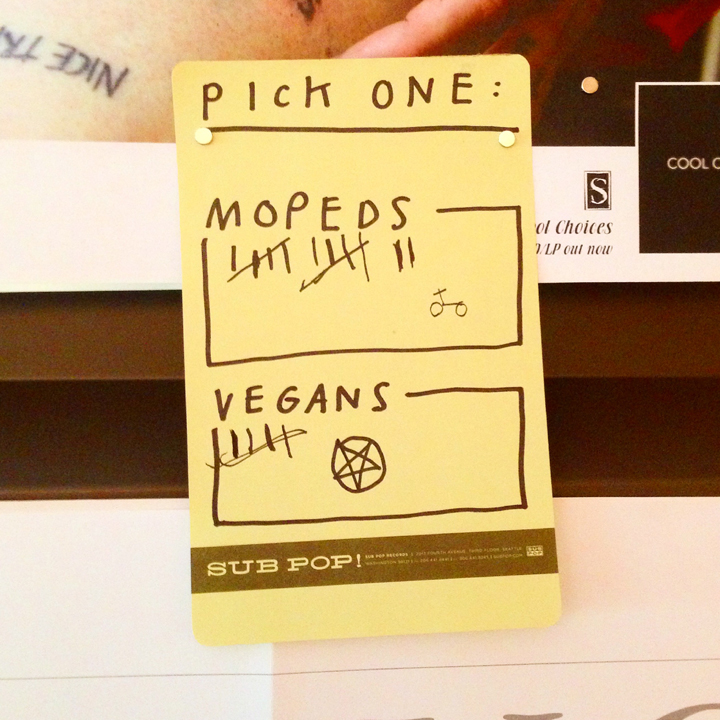 NICE TRY
PICK ONE:
MOPEDS
VEGANS
SUB POP!
SUB POP RECORDS
SUB POP
COOL
S
ol Choices
/LP out now